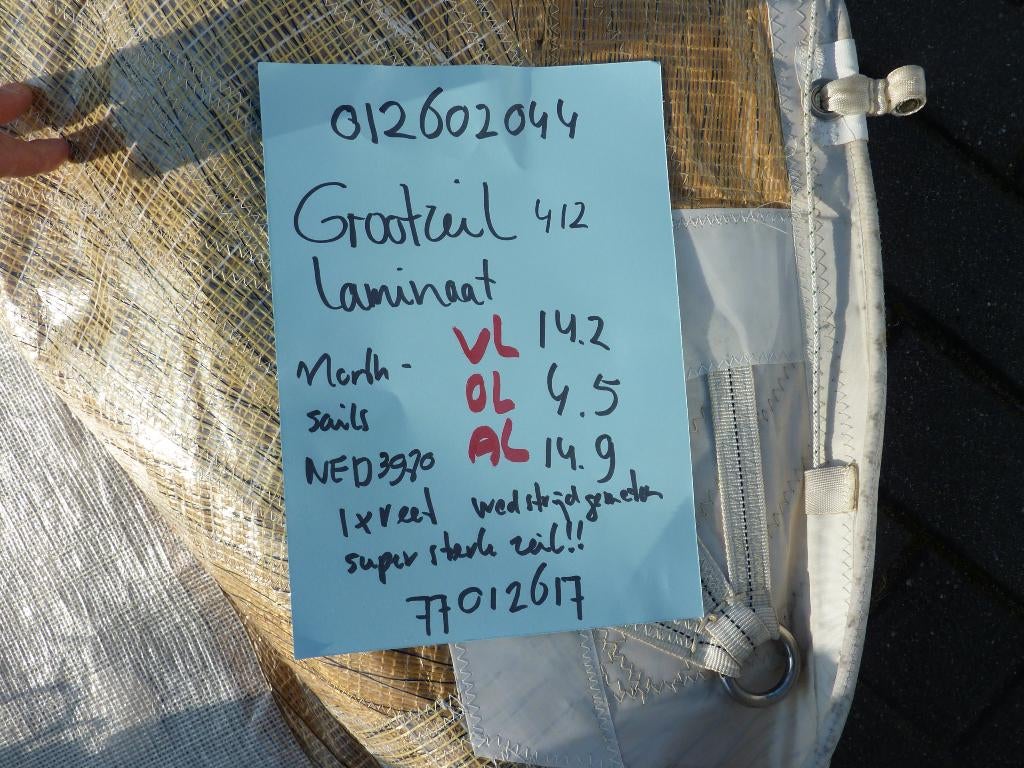 012602044
Grootzeil 412
laminaat
VL 14.2
North-
OL 4.5
sails
AL 14.9
NED3970
1x reef wedstrijdgemeten
super sterk zeil!!
77012617